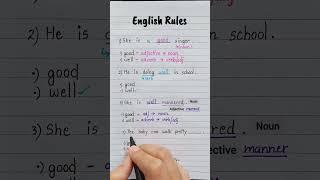 English Rules
1) She is a good singer.
(Noun)
•) good - adjective → noun
•) well - adverb → verb/adj
2) He is doing well in school.
(verb)
•) good
•) well
3) She is well mannered. Noun
Adjective manner
•) good - adj → noun
•) well - adverb → verb/adj
4) The baby can walk pretty
2) He is
school.
•) good
•) well ✓
3) She is
Noun
manner